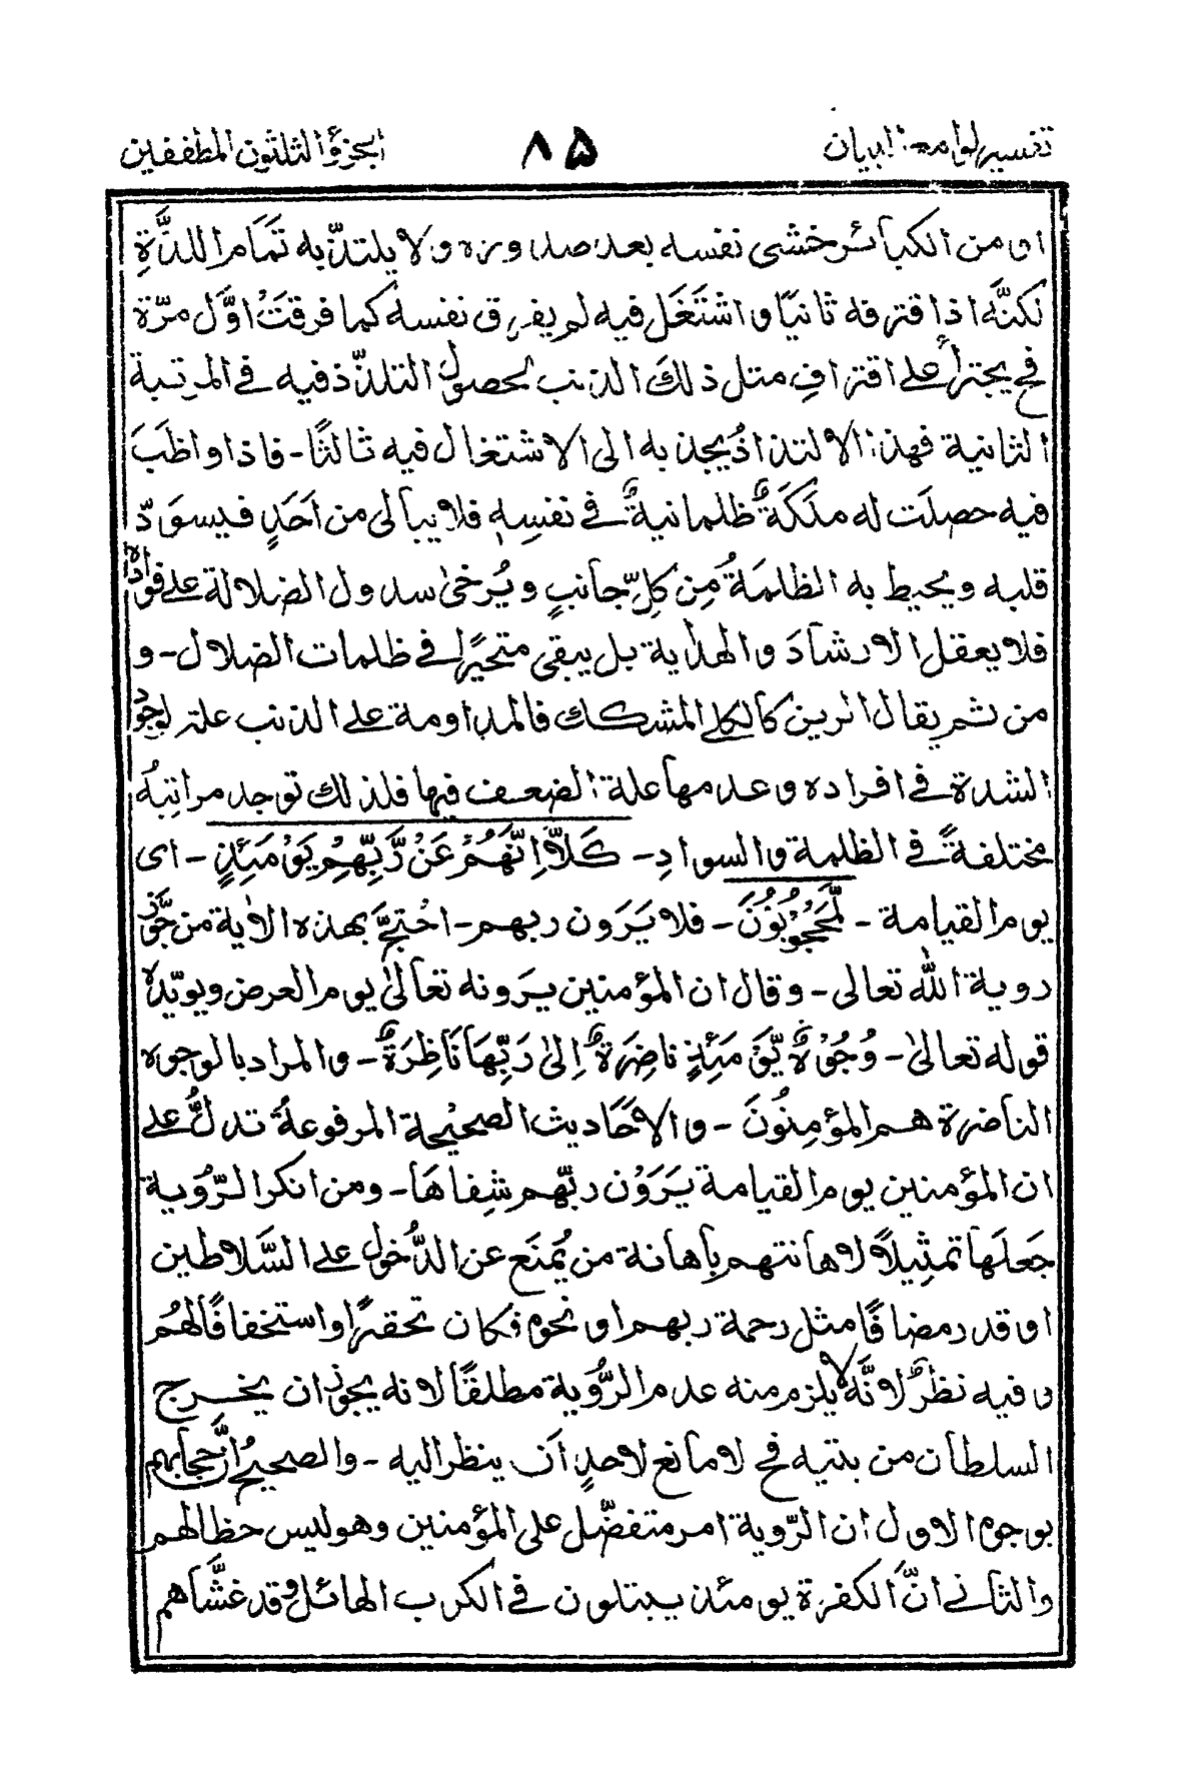 تفسير لوامع البيان
٨٥
الجزؤ الثلثون المطففين
او من الكبائر خشى نفسه بعد صدوره ولا يلتذّ به تَمَام اللذَّةِ
لكنَّه اذا قترفه ثانيًا و اشتَغَل فيه لم يفرق نفسه كما فرقَتْ اوَّل مرّة
فح يجترأ على اقترافِ مثل ذلكَ الذنب لحصول التلذّذ فيه فى المرتبة
الثانية فهذه الالتذاذُ يجذبه الى الاشتغال فيه ثالثًا - فاذا واظَبَ
فيه حصلَت له ملَكَةٌ ظلمانيةٌ فى نفسِهٖ فلا يبالى من اَحَدٍ فيسوَدّ
قلبه ويحيط به الظلمَةُ مِن كلِّ جانبٍ ويُرخىٰ سدول الضلالة على فؤاده
فلا يعقل الارشادَ والهداية بل يبقى متحيّرًا فى ظلمات الضلال - و
من ثم يقال الرين كالكلى المشكك فالمداومة على الذنب علة لوجود
الشدة فى افراده و عدمها علة الضعف فيها فلذلك توجد مراتبُه
مختلفةً فى الظلمة والسوادِ - كَلَّآ اِنَّهُمْ عَنْ رَّبِّهِمْ يَوْمَئِذٍ - اى
يوم القيامة - لَّمَحْجُوْبُوْنَ - فلا يَرَون ربهم - احْتجَّ بهذه الاٰية من جَّوز
روية الله تعالى - وقال ان المؤمنين يرونه تعالىٰ يوم العرض ويويّده
قوله تعالىٰ - وُجُوْهٌ يَّوْمَئِذٍ نَاضِرَةٌ اِلىٰ رَبِّهَا نَاظِرَةٌ - والمراد بالوجوه
الناضرة هم المؤمِنُونَ - والاحَاديث الصحيْحة المرفوعةُ تدلُّ على
ان المؤمنين يوم القيامة يَرَوْن ربَّهم شِفاهَا - ومن انكر الرُّوية
جَعلَها تمثِيلاً لاهانتهم باهانة من يُمنَع عن الدُّخول على السَّلاطين
او قدر مضافًا مثل رحمة ربهم او نحوه فكان تحقيرًا و استخفافًا لهُم
و فيه نظرٌ لانَّه لا يلزم منه عدم الرُّوية مطلقًا لانه يجوز ان يخرج
السلطان من بيته فح لا مانع لاحدٍ اَن ينظر اليه - والصحيحُ اَنَّ حجابهم
بوجوه الاول ان الرّوية امر متفضّل على المؤمنين وهو ليس حظا لهم
والثانى انّ الكفرة يومئذ يبتلون فى الكرب الهائل وقد غشَّاهم